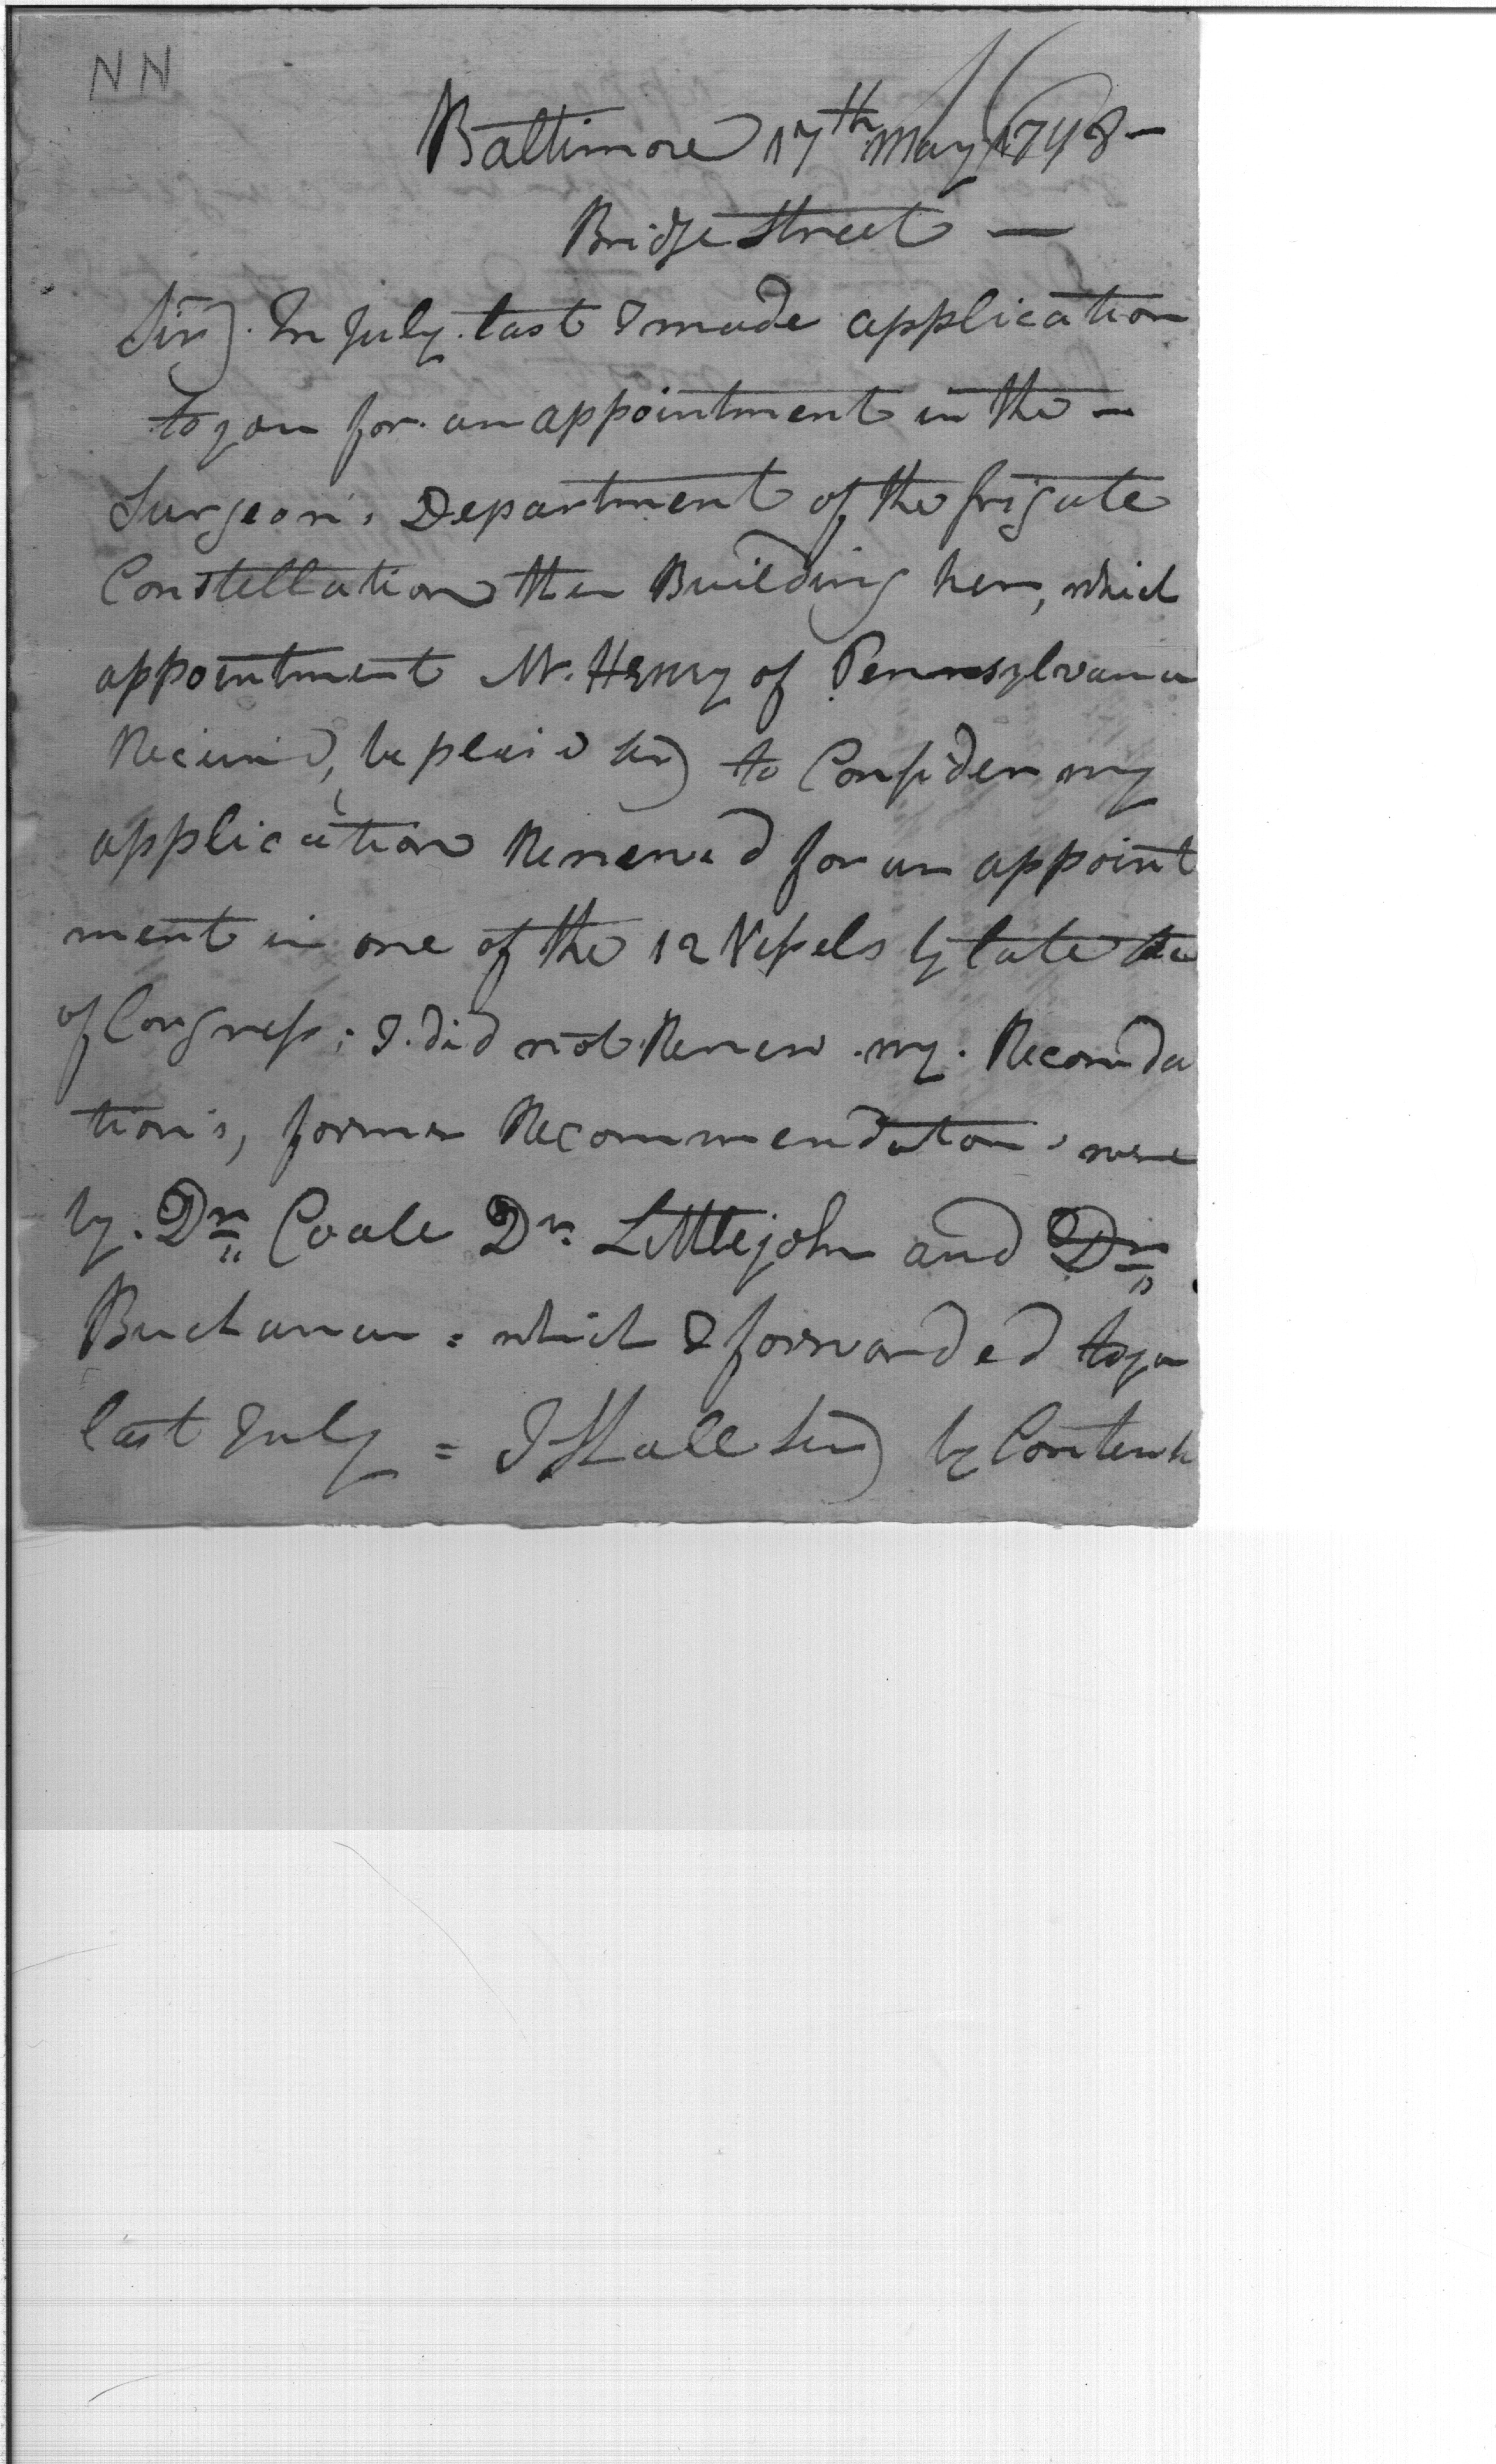 NN
Baltimore 17th May 1798 —
Bridge Street —
Sir). In July last I made application
to you for an appointment in the —
Surgeon's Department of the frigate
Constellation then Building her, which
appointment Mr. Henry of Pennsylvania
Received, be pleased Sir) to Consider my
application Renewed for an appoint
ment in one of the 12 Vessels by late
of Congress; I did not Renew my Recomda
tion's, former Recommendation's were
by Dr. Coale Dr. Littlejohn and Dr.
Buchanan = which I forwarded to you
last July = I Shall Sir) by